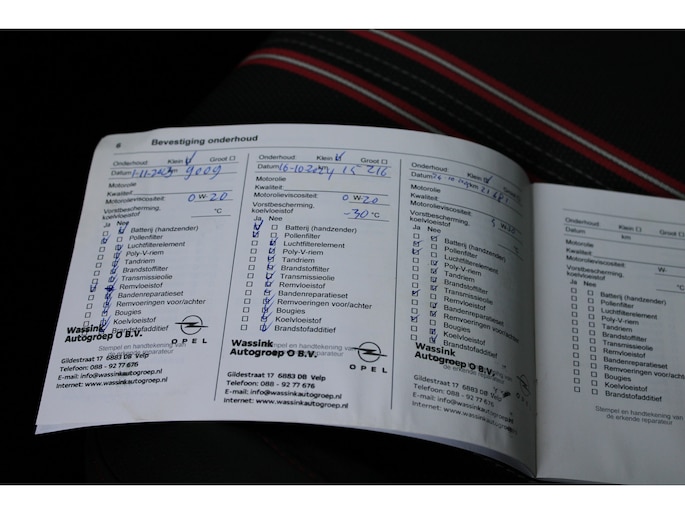 6 Bevestiging onderhoud
Onderhoud: Klein Groot
Datum 1-11-2023 km 9009
Motorolie
Kwaliteit
Motorolieviscositeit: 0 W-20
Vorstbescherming, koelvloeistof °C
Ja Nee
Batterij (handzender)
Pollenfilter
Luchtfilterelement
Poly-V-riem
Tandriem
Brandstoffilter
Transmissieolie
Remvloeistof
Bandenreparatieset
Remvoeringen voor/achter
Bougies
Koelvloeistof
Brandstofadditief
Wassink
Autogroep O B.V.
OPEL
Stempel en handtekening van
de erkende reparateur
Gildestraat 17 6883 DB Velp
Telefoon: 088 - 92 77 676
E-mail: info@wassinkautogroep.nl
Internet: www.wassinkautogroep.nl
Onderhoud: Klein Groot
Datum 16-10-2024 15 216
Motorolie
Kwaliteit
Motorolieviscositeit: 0 W-20
Vorstbescherming,
koelvloeistof -30 °C
Ja Nee
Batterij (handzender)
Pollenfilter
Luchtfilterelement
Poly-V-riem
Tandriem
Brandstoffilter
Transmissieolie
Remvloeistof
Bandenreparatieset
Remvoeringen voor/achter
Bougies
Koelvloeistof
Brandstofadditief
Wassink
Autogroep O B.V.
OPEL
Stempel en handtekening van
de erkende reparateur
Gildestraat 17 6883 DB Velp
Telefoon: 088 - 92 77 676
E-mail: info@wassinkautogroep.nl
Internet: www.wassinkautogroep.nl
Onderhoud: Klein Groot
Datum km
Motorolie
Kwaliteit
Motorolieviscositeit: W-
Vorstbescherming,
koelvloeistof °C
Ja Nee
Batterij (handzender)
Pollenfilter
Luchtfilterelement
Poly-V-riem
Tandriem
Brandstoffilter
Transmissieolie
Remvloeistof
Bandenreparatieset
Remvoeringen voor/achter
Bougies
Koelvloeistof
Brandstofadditief
Wassink
Autogroep O B.V.
OPEL
de erkende reparateur
Gildestraat 17 6883 DB Velp
Telefoon: 088 - 92 77 676
E-mail: info@wassinkautogroep.nl
Internet: www.wassinkautogroep.nl
Onderhoud: Klein Groot
Datum km
Motorolie
Kwaliteit
Motorolieviscositeit: W-
Vorstbescherming,
koelvloeistof °C
Ja Nee
Batterij (handzender)
Pollenfilter
Luchtfilterelement
Poly-V-riem
Tandriem
Brandstoffilter
Transmissieolie
Remvloeistof
Bandenreparatieset
Remvoeringen voor/achter
Bougies
Koelvloeistof
Brandstofadditief
Stempel en handtekening van
de erkende reparateur